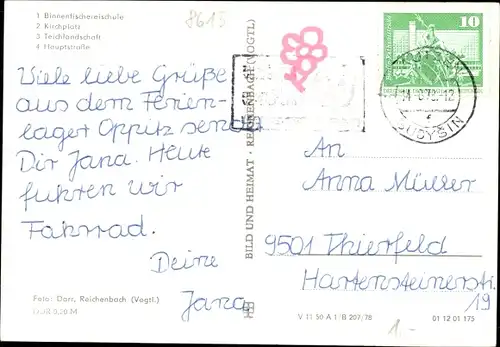 1 Binnenfischereischule
2 Kirchplatz
3 Teichlandschaft
4 Hauptstraße
8615
Viele liebe Grüße
aus dem Ferien-
lager Oppitz sendet
Dir Jana. Heute
fuhren wir
Fahrrad.
Deine
Jana
Foto: Darr, Reichenbach (Vogtl.)
DDR 0,20 M
BILD UND HEIMAT · REICHENBACH (VOGTL)
10
BUDYŠIN
An
Anna Müller
9501 Thierfeld
Hartensteinerstr.
19
V 11 50 A 1/B 207/78
01 12 01 175
1.-